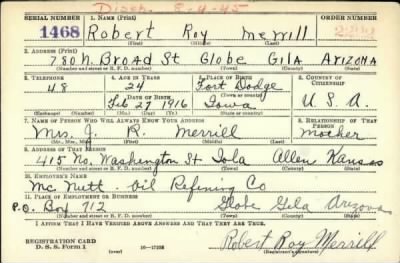 Disch. 8-4-45
SERIAL NUMBER 1. NAME (Print) ORDER NUMBER
1468 Robert Roy Merrill
(First) (Middle) (Last)
2. ADDRESS (Print)
780 N. Broad St Globe Gila Arizona
(Number and street or R. F. D. number) (Town) (County) (State)
3. TELEPHONE 4. AGE IN YEARS 5. PLACE OF BIRTH 6. COUNTRY OF CITIZENSHIP
48 24 Fort Dodge
DATE OF BIRTH
Feb 27 1916 Iowa U.S.A.
(Exchange) (Number) (Mo.) (Day) (Yr.) (State or country)
7. NAME OF PERSON WHO WILL ALWAYS KNOW YOUR ADDRESS 8. RELATIONSHIP OF THAT PERSON
Mrs. J. R. Merrill Mother
(Mr., Mrs., Miss) (First) (Middle) (Last)
9. ADDRESS OF THAT PERSON
415 No. Washington St Iola Allen Kansas
(Number and street or R. F. D. number) (Town) (County) (State)
10. EMPLOYER'S NAME
Mc Nutt. Oil Refining Co
11. PLACE OF EMPLOYMENT OR BUSINESS
P.O. Box 712 Globe Gila Arizona
(Number and street or R. F. D. number) (Town) (County) (State)
I AFFIRM THAT I HAVE VERIFIED ABOVE ANSWERS AND THAT THEY ARE TRUE.
REGISTRATION CARD
D. S. S. Form 1 (over) Robert Roy Merrill
(Registrant's signature)